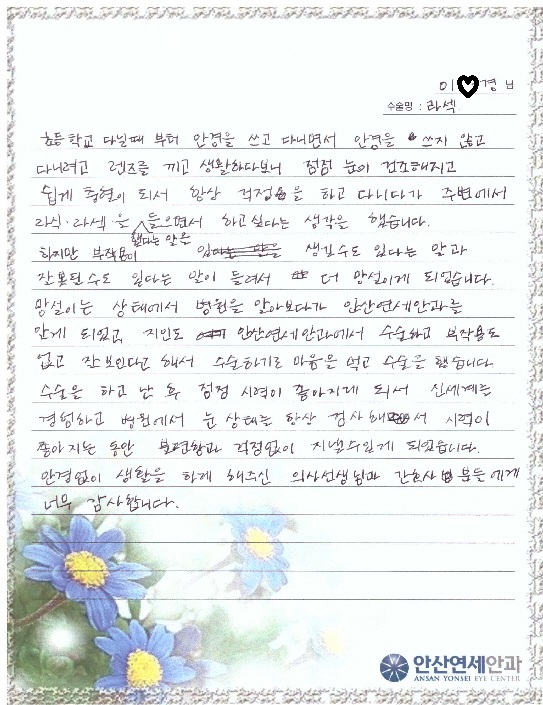 이 경 님
수술명 : 라섹
초등학교 다닐때 부터 안경을 쓰고 다니면서 안경을 쓰지 않고
다니려고 렌즈를 끼고 생활하다보니 점점 눈이 건조해지고
쉽게 충혈이 되서 항상 걱정을 하고 다니다가 주변에서
라식·라섹을 했다는 말은 들으면서 하고싶다는 생각은 했습니다.
하지만 부작용이 생길수도 있다는 말과
잘못될수도 있다는 말이 들려서 더 망설이게 되었습니다.
망설이는 상태에서 병원을 알아보다가 안산연세안과를
알게 되었고, 지인도 안산연세안과에서 수술하고 부작용도
없고 잘보인다고 해서 수술하기로 마음을 먹고 수술을 했습니다.
수술은 하고 난 후 점점 시력이 좋아지게 되서 신세계를
경험하고 병원에서 눈 상태를 항상 검사해서 시력이
좋아지는 동안 불편함과 걱정없이 지낼수있게 되었습니다.
안경없이 생활을 하게 해주신 의사선생님과 간호사 분들에게
너무 감사합니다.
안산연세안과
ANSAN YONSEI EYE CENTER